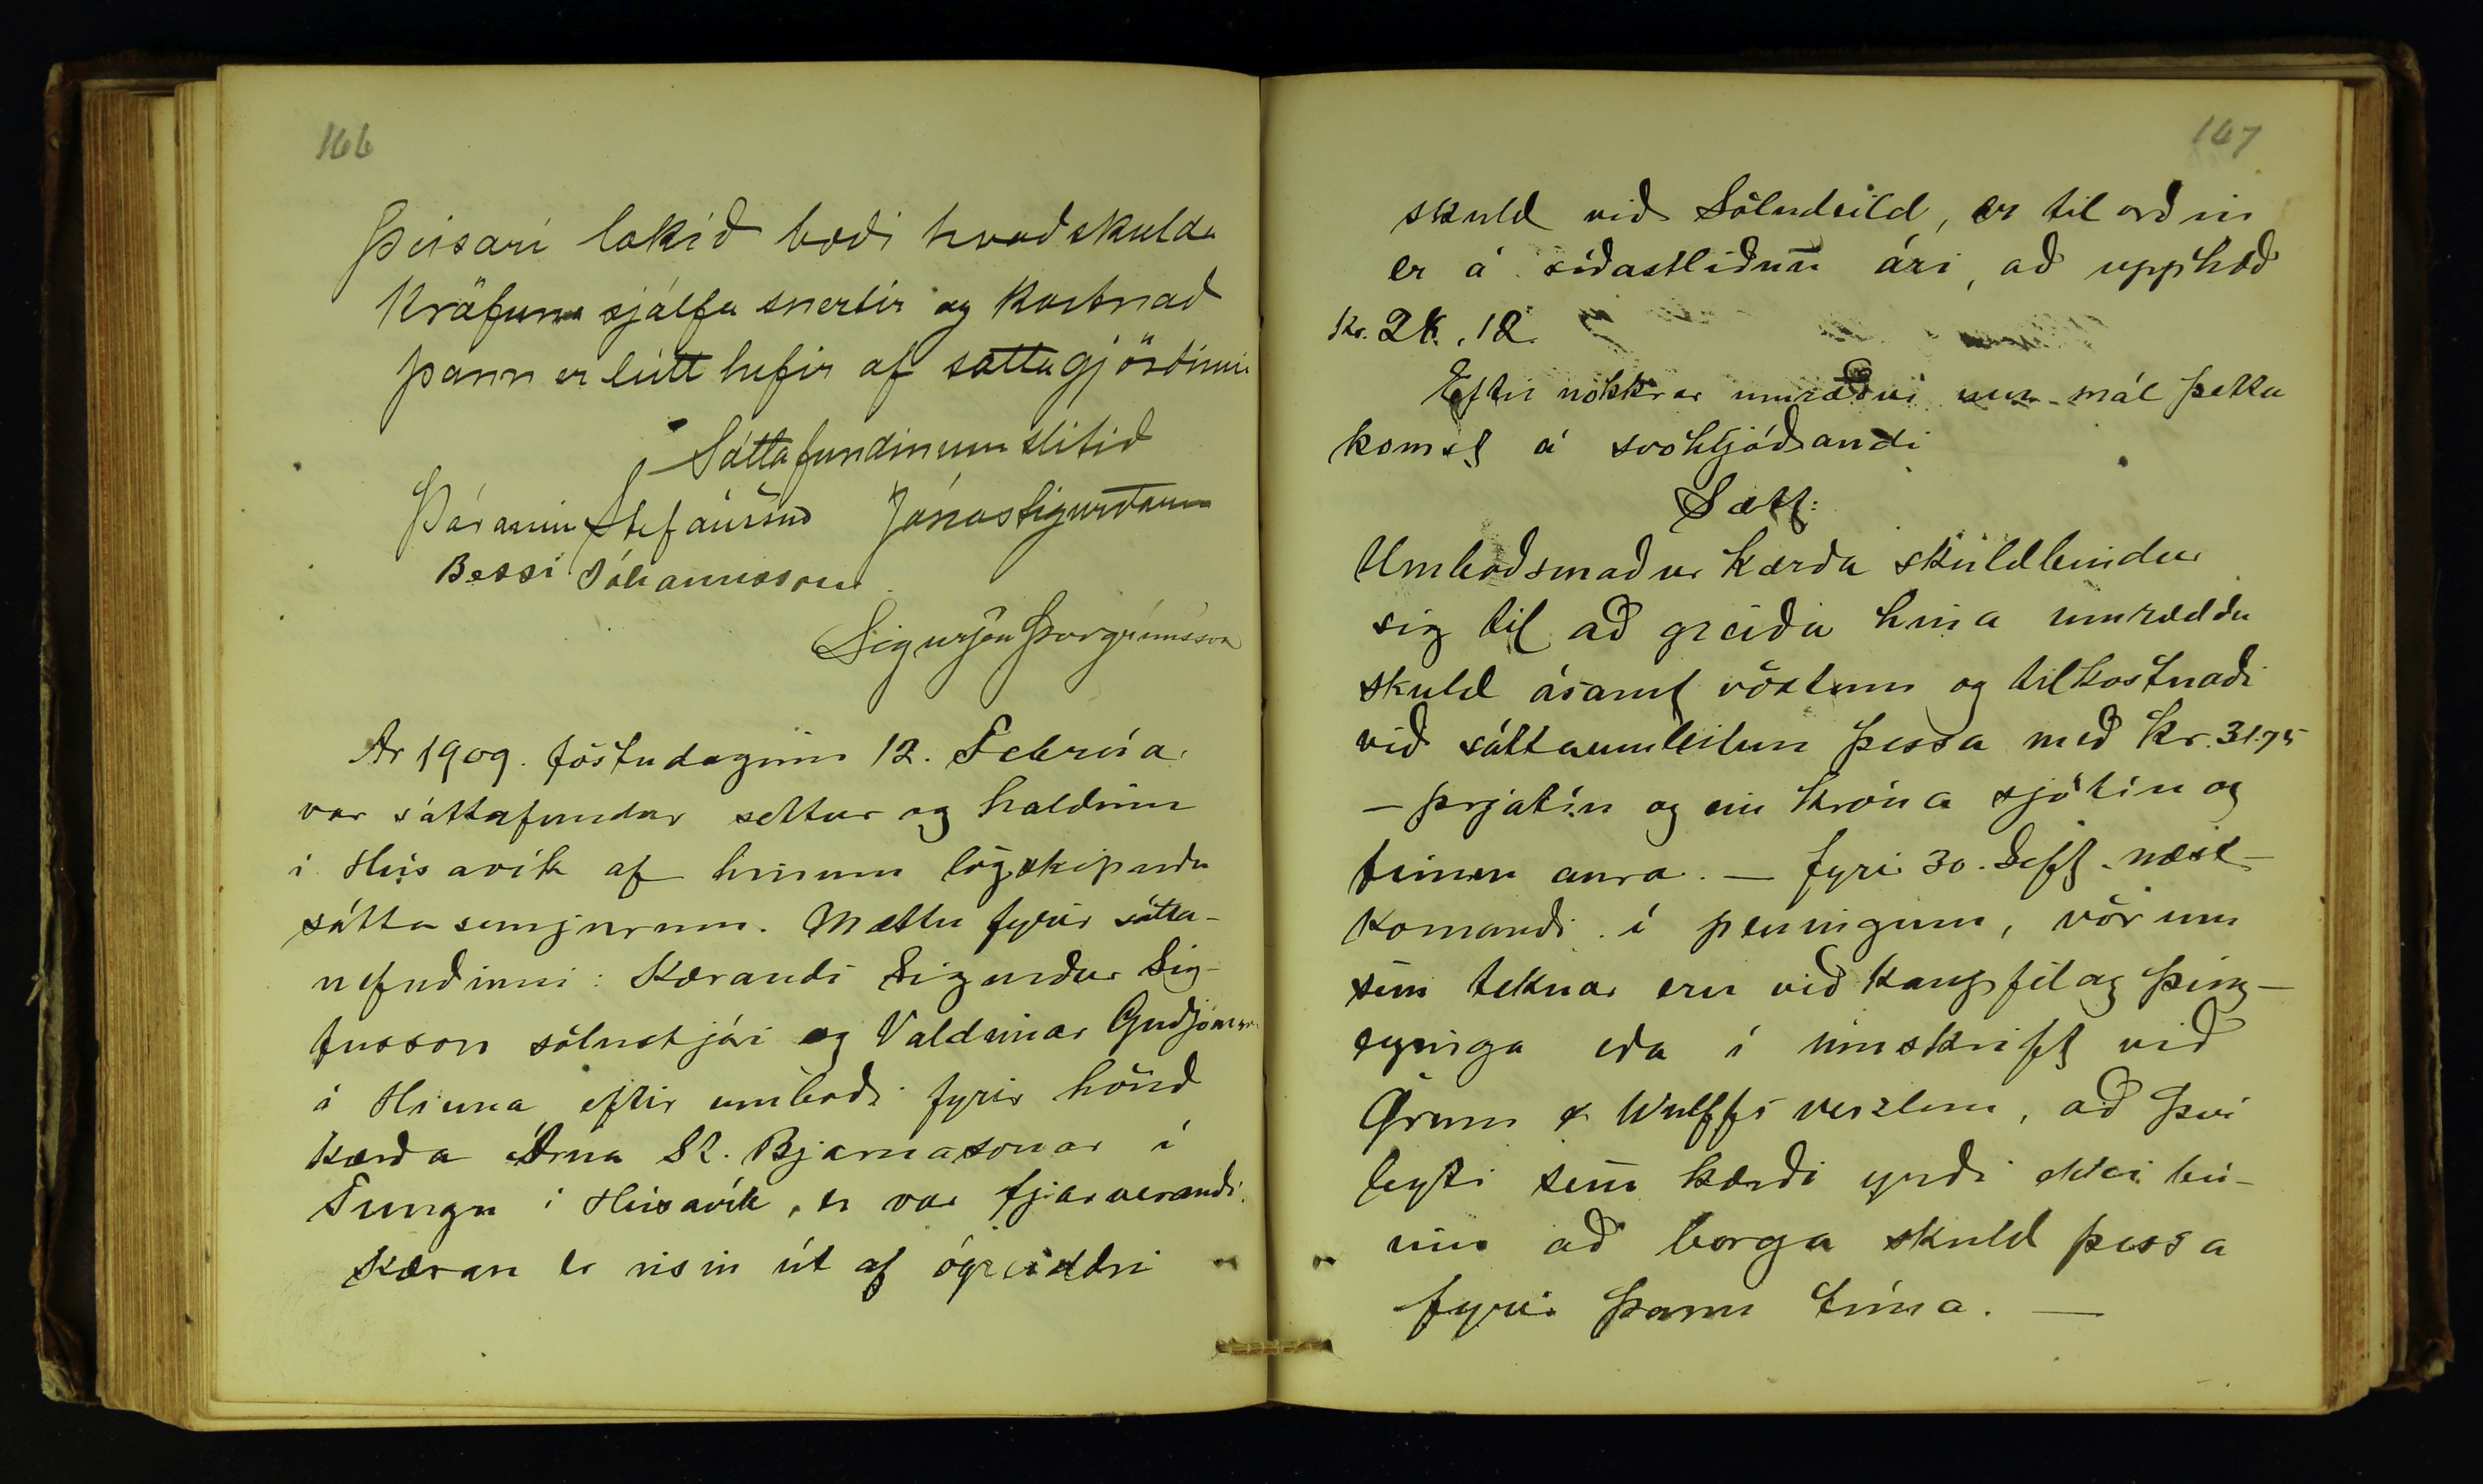 166
Þessari lokið bæði hvað skulda
kröfuna sjálfa snertir og kostnað
þann er leitt hefir af sáttagjörðinni
Sáttafundinum slitið
Þórarinn Stefánsson Jónas Sigurðsson
Bessi Jóhannsson
Sigurjón Þorgrímsson
Ár 1909. föstudaginn 12. Febrúar
var sáttafundur settur og haldinn
í Húsavík af hinum lögskipuðu
sáttasemjurum. Mættu fyrir sátta-
nefndinni: Kærandi Sigurður Sig-
fússon sölustjóri og Valdimar Guðjónsson
á eftir umboði fyrir hönd
kærða Árna St. Bjarnasonar í
Tungu í Húsavík, er var fjarverandi.
Kæran er risin út af ógreiddri
167
skuld við Söludeild, er til orðin
er á síðastliðnu ári, að upphæð
Kr. 28.12
Eftir nokkrar umræður um mál þetta
komst á svohljóðandi
Sætt:
Umboðsmaður kærða skuldbindur
sig til að greiða hina umræddu
skuld ásamt vöxtum og tilkostnaði
við sáttaumleitun þessa með kr. 31.75
— þrjátíu og ein króna sjötíu og
fimm aura. — fyrir 30. Sept. næst-
komandi í peningum, vörum
sem teknar eru við kaupfélag Þing-
eyinga eða í innskrift við
Örum & Wulffs verzlun, að því
leyti sem kærði yrði ekki bú-
inn að borga skuld þessa
fyrir þann tíma. —